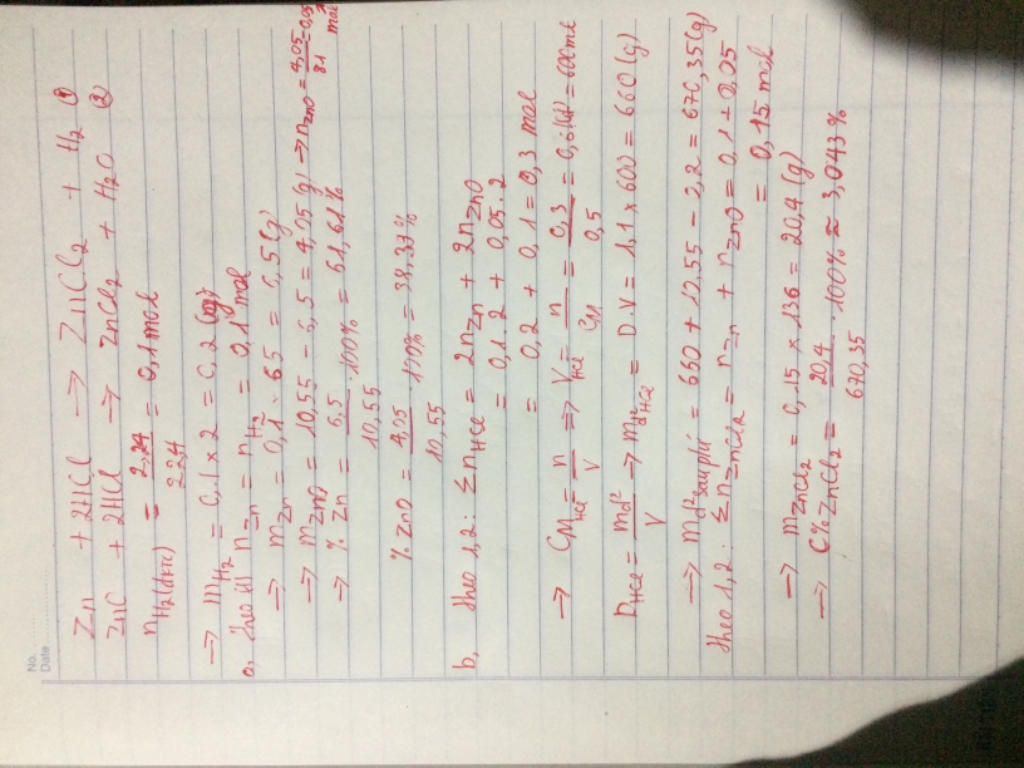 No.
Date
Zn + 2HCl → ZnCl₂ + H₂ ①
ZnO + 2HCl → ZnCl₂ + H₂O ②
nH₂(đktc) = 2,24/22,4 = 0,1 mol
→ mH₂ = 0,1 x 2 = 0,2 (g)
a, theo (1) nZn = nH₂ = 0,1 mol
→ mZn = 0,1 . 65 = 6,5(g)
→ mZnO = 10,55 - 6,5 = 4,05 (g) → nZnO = 4,05/81 = 0,05 mol
→ % Zn = 6,5/10,55 . 100% = 61,61%
% ZnO = 4,05/10,55 . 100% = 38,39%
b, theo 1,2: ΣnHCl = 2nZn + 2nZnO
= 0,1.2 + 0,05.2
= 0,2 + 0,1 = 0,3 mol
→ CMHCl = n/V => VHCl = n/CM = 0,3/0,5 = 0,6(l) = 600ml
DHCl = md²/V → md²HCl = D.V = 1,1 x 600 = 660 (g)
→ md² sau pứ = 660 + 10,55 - 0,2 = 670,35(g)
theo 1,2: ΣnZnCl₂ = nZn + nZnO = 0,1 + 0,05
= 0,15 mol
→ mZnCl₂ = 0,15 x 136 = 20,4 (g)
→ C% ZnCl₂ = 20,4/670,35 . 100% ≈ 3,043%